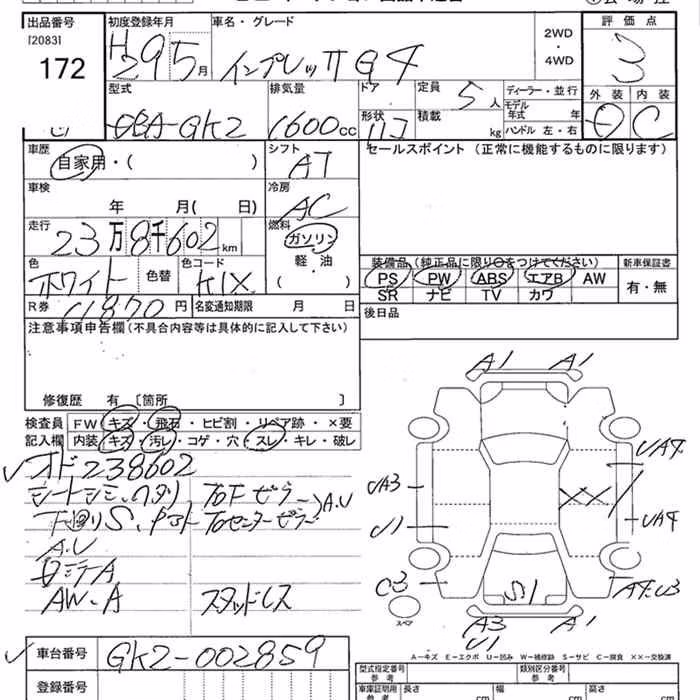 出品番号 初度登録年月 車名・グレード 2WD・4WD 評価点
[2083] H29 5月 インプレッサ G4 3
172
型式 排気量 ドア 定員 5人 ディーラー・並行 外装 内装
DBA-GK2 1600cc 形状 積載 kg モデル年式 年 D C
ハンドル 左・右
車歴 シフト セールスポイント (正常に機能するものに限ります)
自家用・( ) AT
車検 冷房
年 月( 日) AC
走行 燃料
23万8千602km ガソリン
軽・油
( )
色 色替 色コード
ホワイト K1X
装備品(純正品に限り○をつけてください) 新車保証書
PS PW ABS エアB AW 有・無
SR ナビ TV カワ
R券 11870円 名変通知期限 月 日
後日品
注意事項申告欄(不具合内容等は具体的に記入して下さい)
修復歴 有 〔箇所 〕
検査員 FW キズ・飛石・ヒビ割・リペア跡・×要
記入欄 内装 キズ・汚レ・コゲ・穴・スレ・キレ・破レ
オド238602
シートシミ、ヘタリ
下廻りS
A.U
AW・A スタッドレス
A1 A1
UA3 UA4
XX
U1 UA4
C3 S1 A4.U3
スペア
A3 A1
U1
A―キズ E―エクボ U―凹み W―補修跡 S―サビ C―腐食 XX―交換済
車台番号 GK2-002859
登録番号
型式指定番号 参考 類別区分番号 参考
車庫証明用 参考 長さ cm 幅 cm 高さ cm